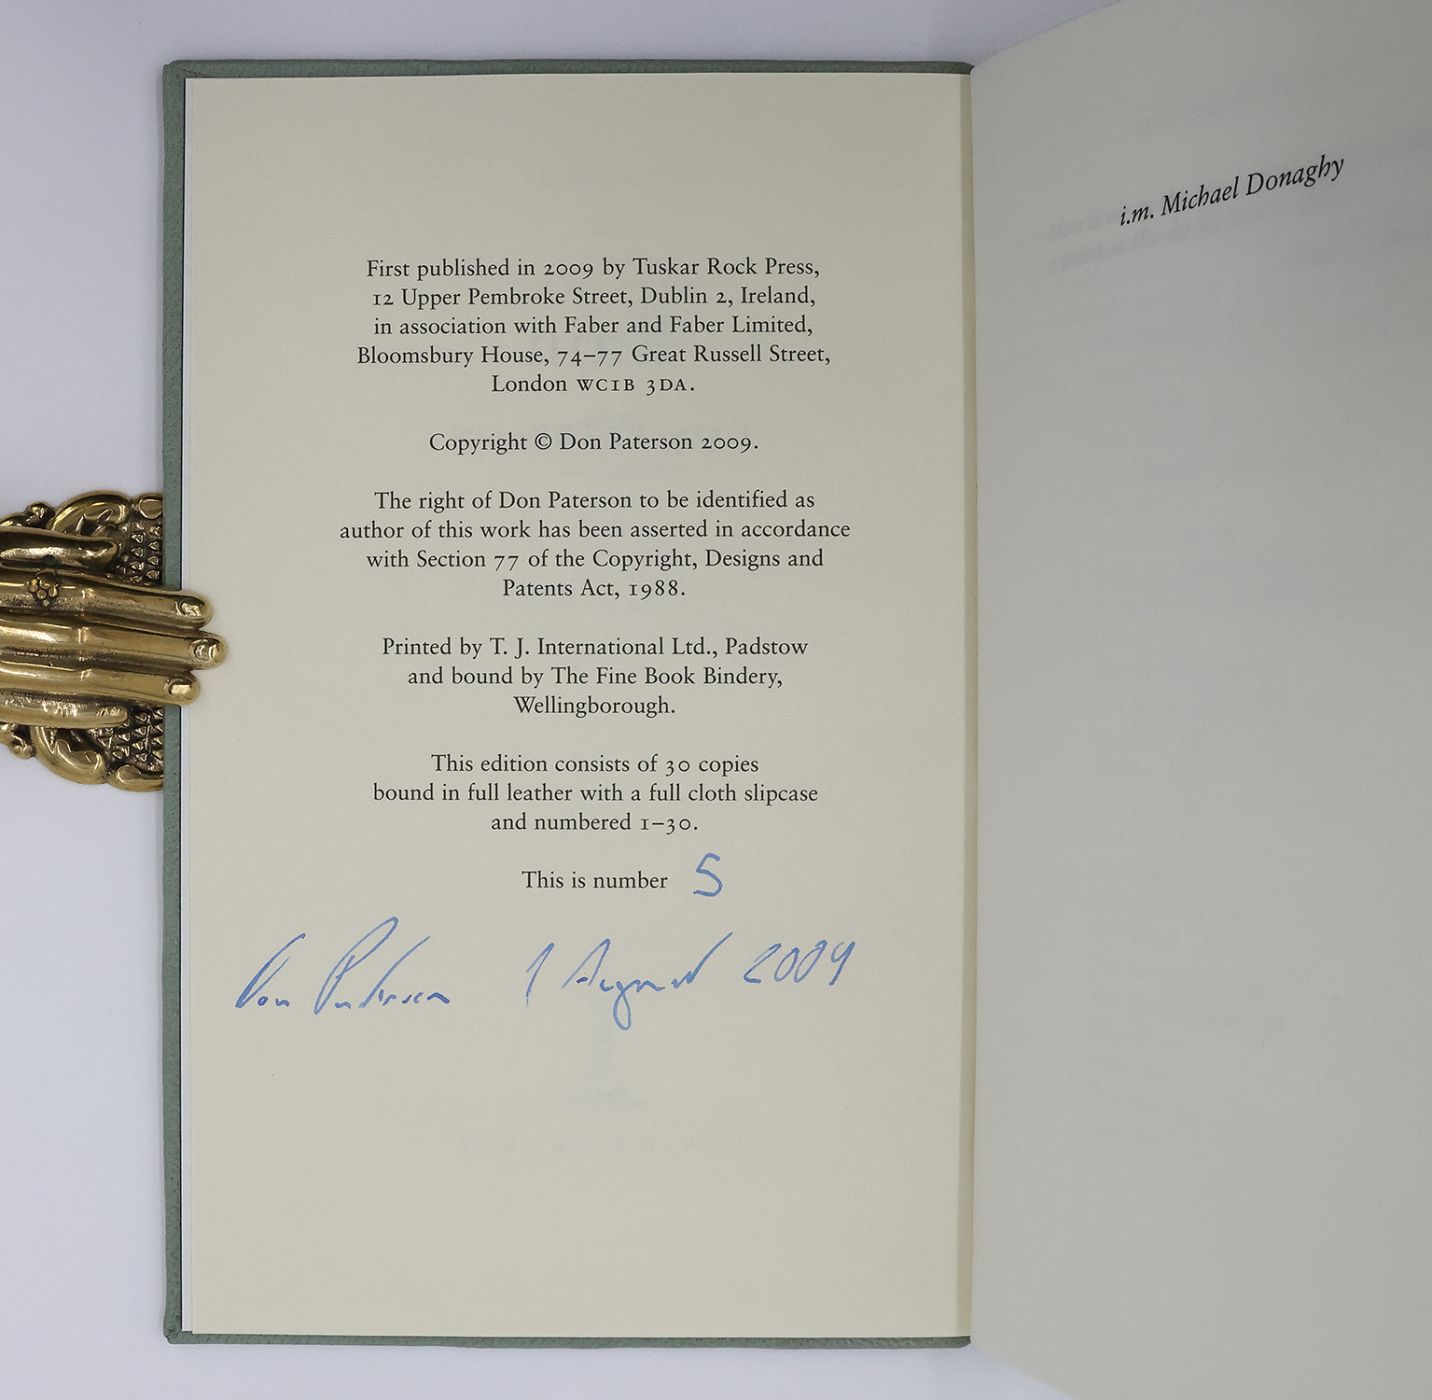 First published in 2009 by Tuskar Rock Press,
12 Upper Pembroke Street, Dublin 2, Ireland,
in association with Faber and Faber Limited,
Bloomsbury House, 74–77 Great Russell Street,
London WC1B 3DA.
Copyright © Don Paterson 2009.
The right of Don Paterson to be identified as
author of this work has been asserted in accordance
with Section 77 of the Copyright, Designs and
Patents Act, 1988.
Printed by T. J. International Ltd., Padstow
and bound by The Fine Book Bindery,
Wellingborough.
This edition consists of 30 copies
bound in full leather with a full cloth slipcase
and numbered 1–30.
This is number 5
Don Paterson 1 August 2009
i.m. Michael Donaghy